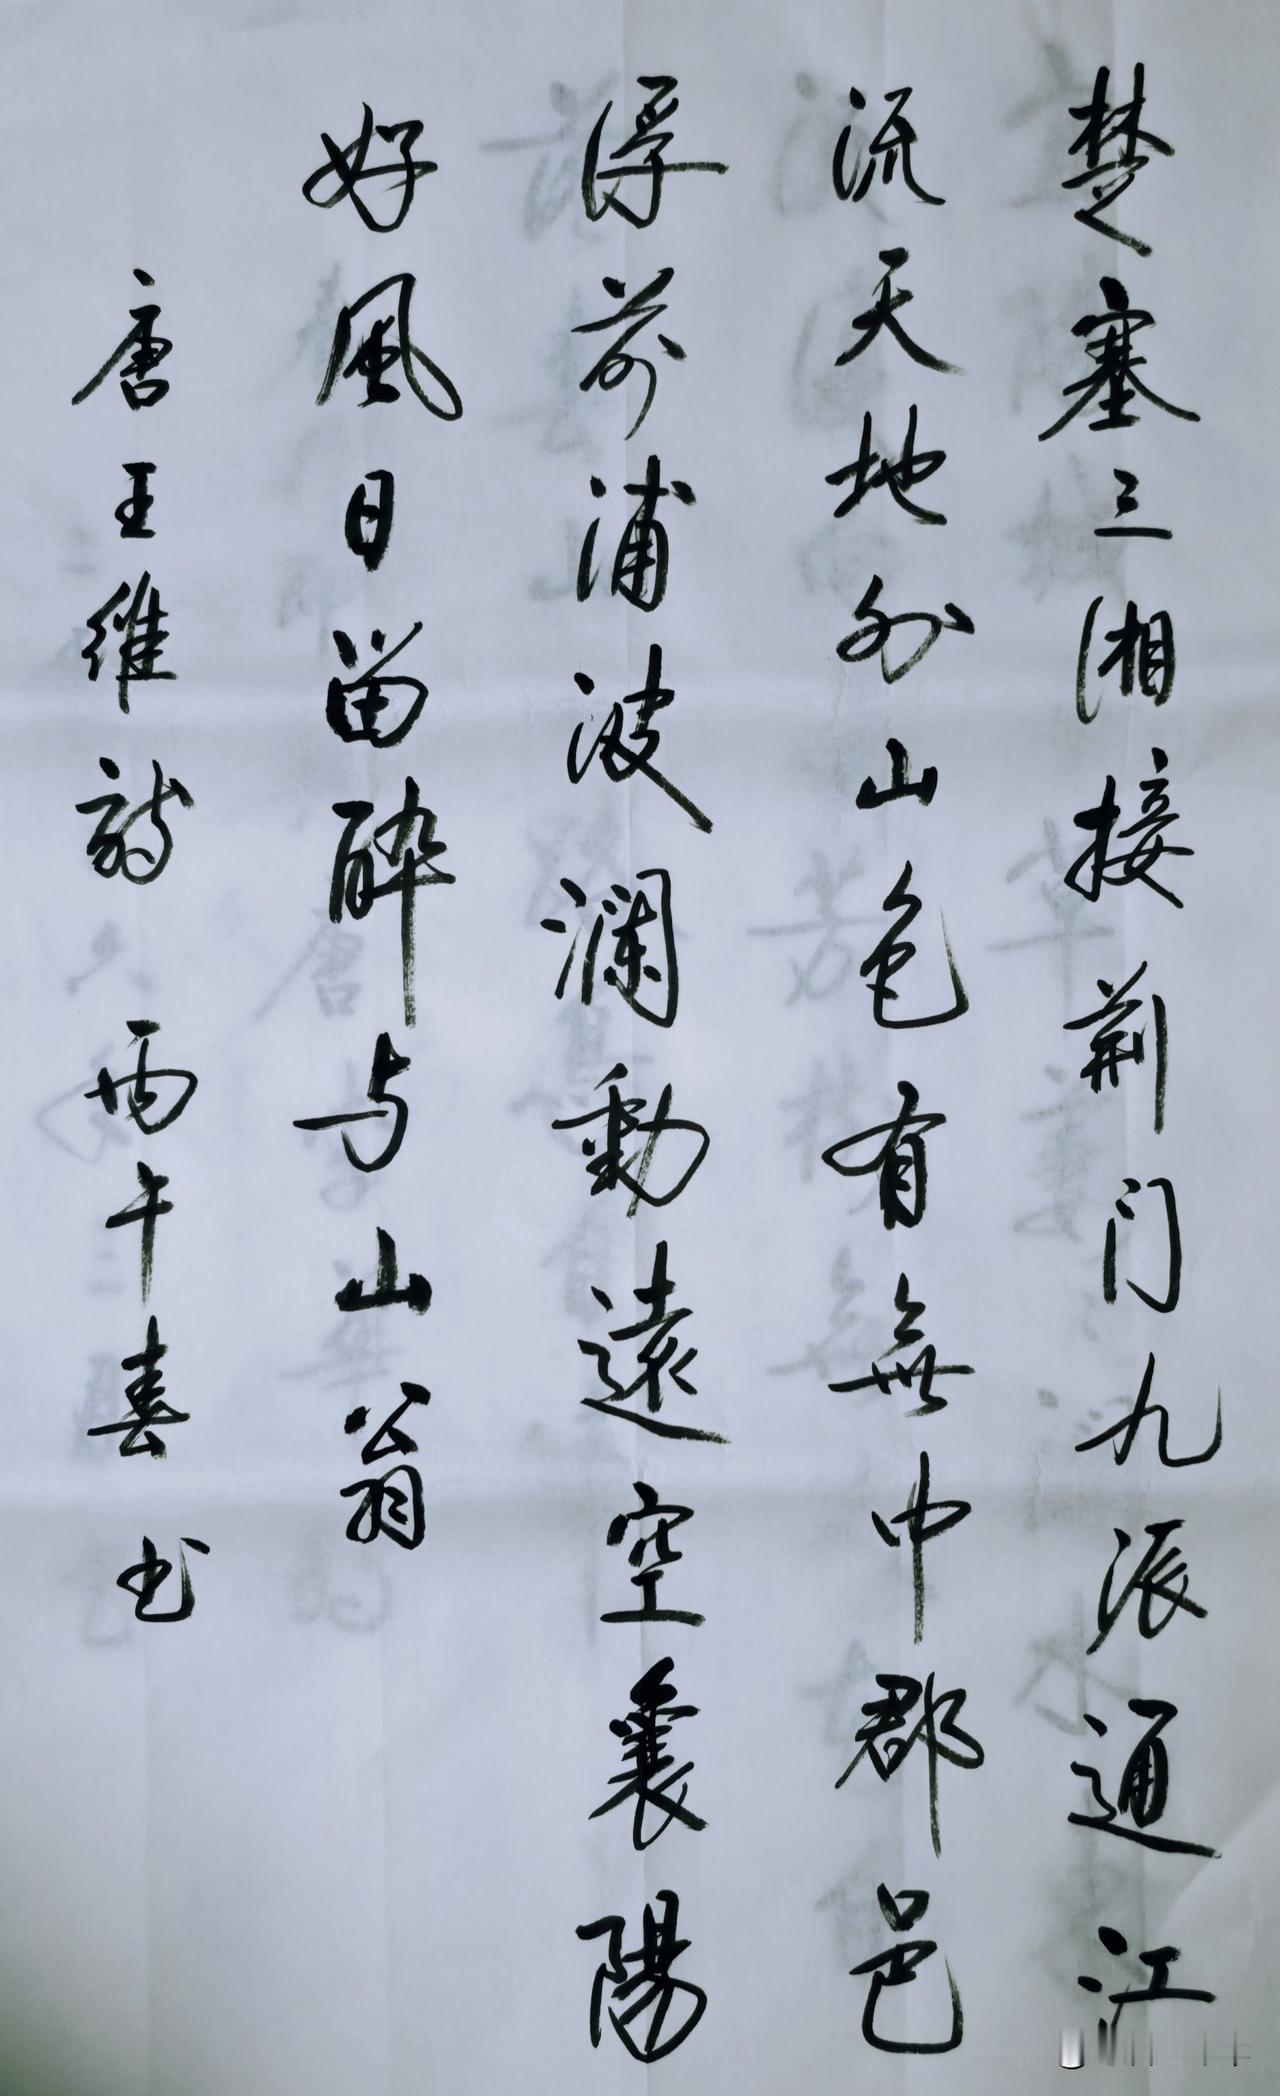 楚塞三湘接荊门九派通江
流天地外山色有無中郡邑
浮前浦波瀾動遠空襄陽
好風日留醉与山翁
唐王維詩 丙午春书